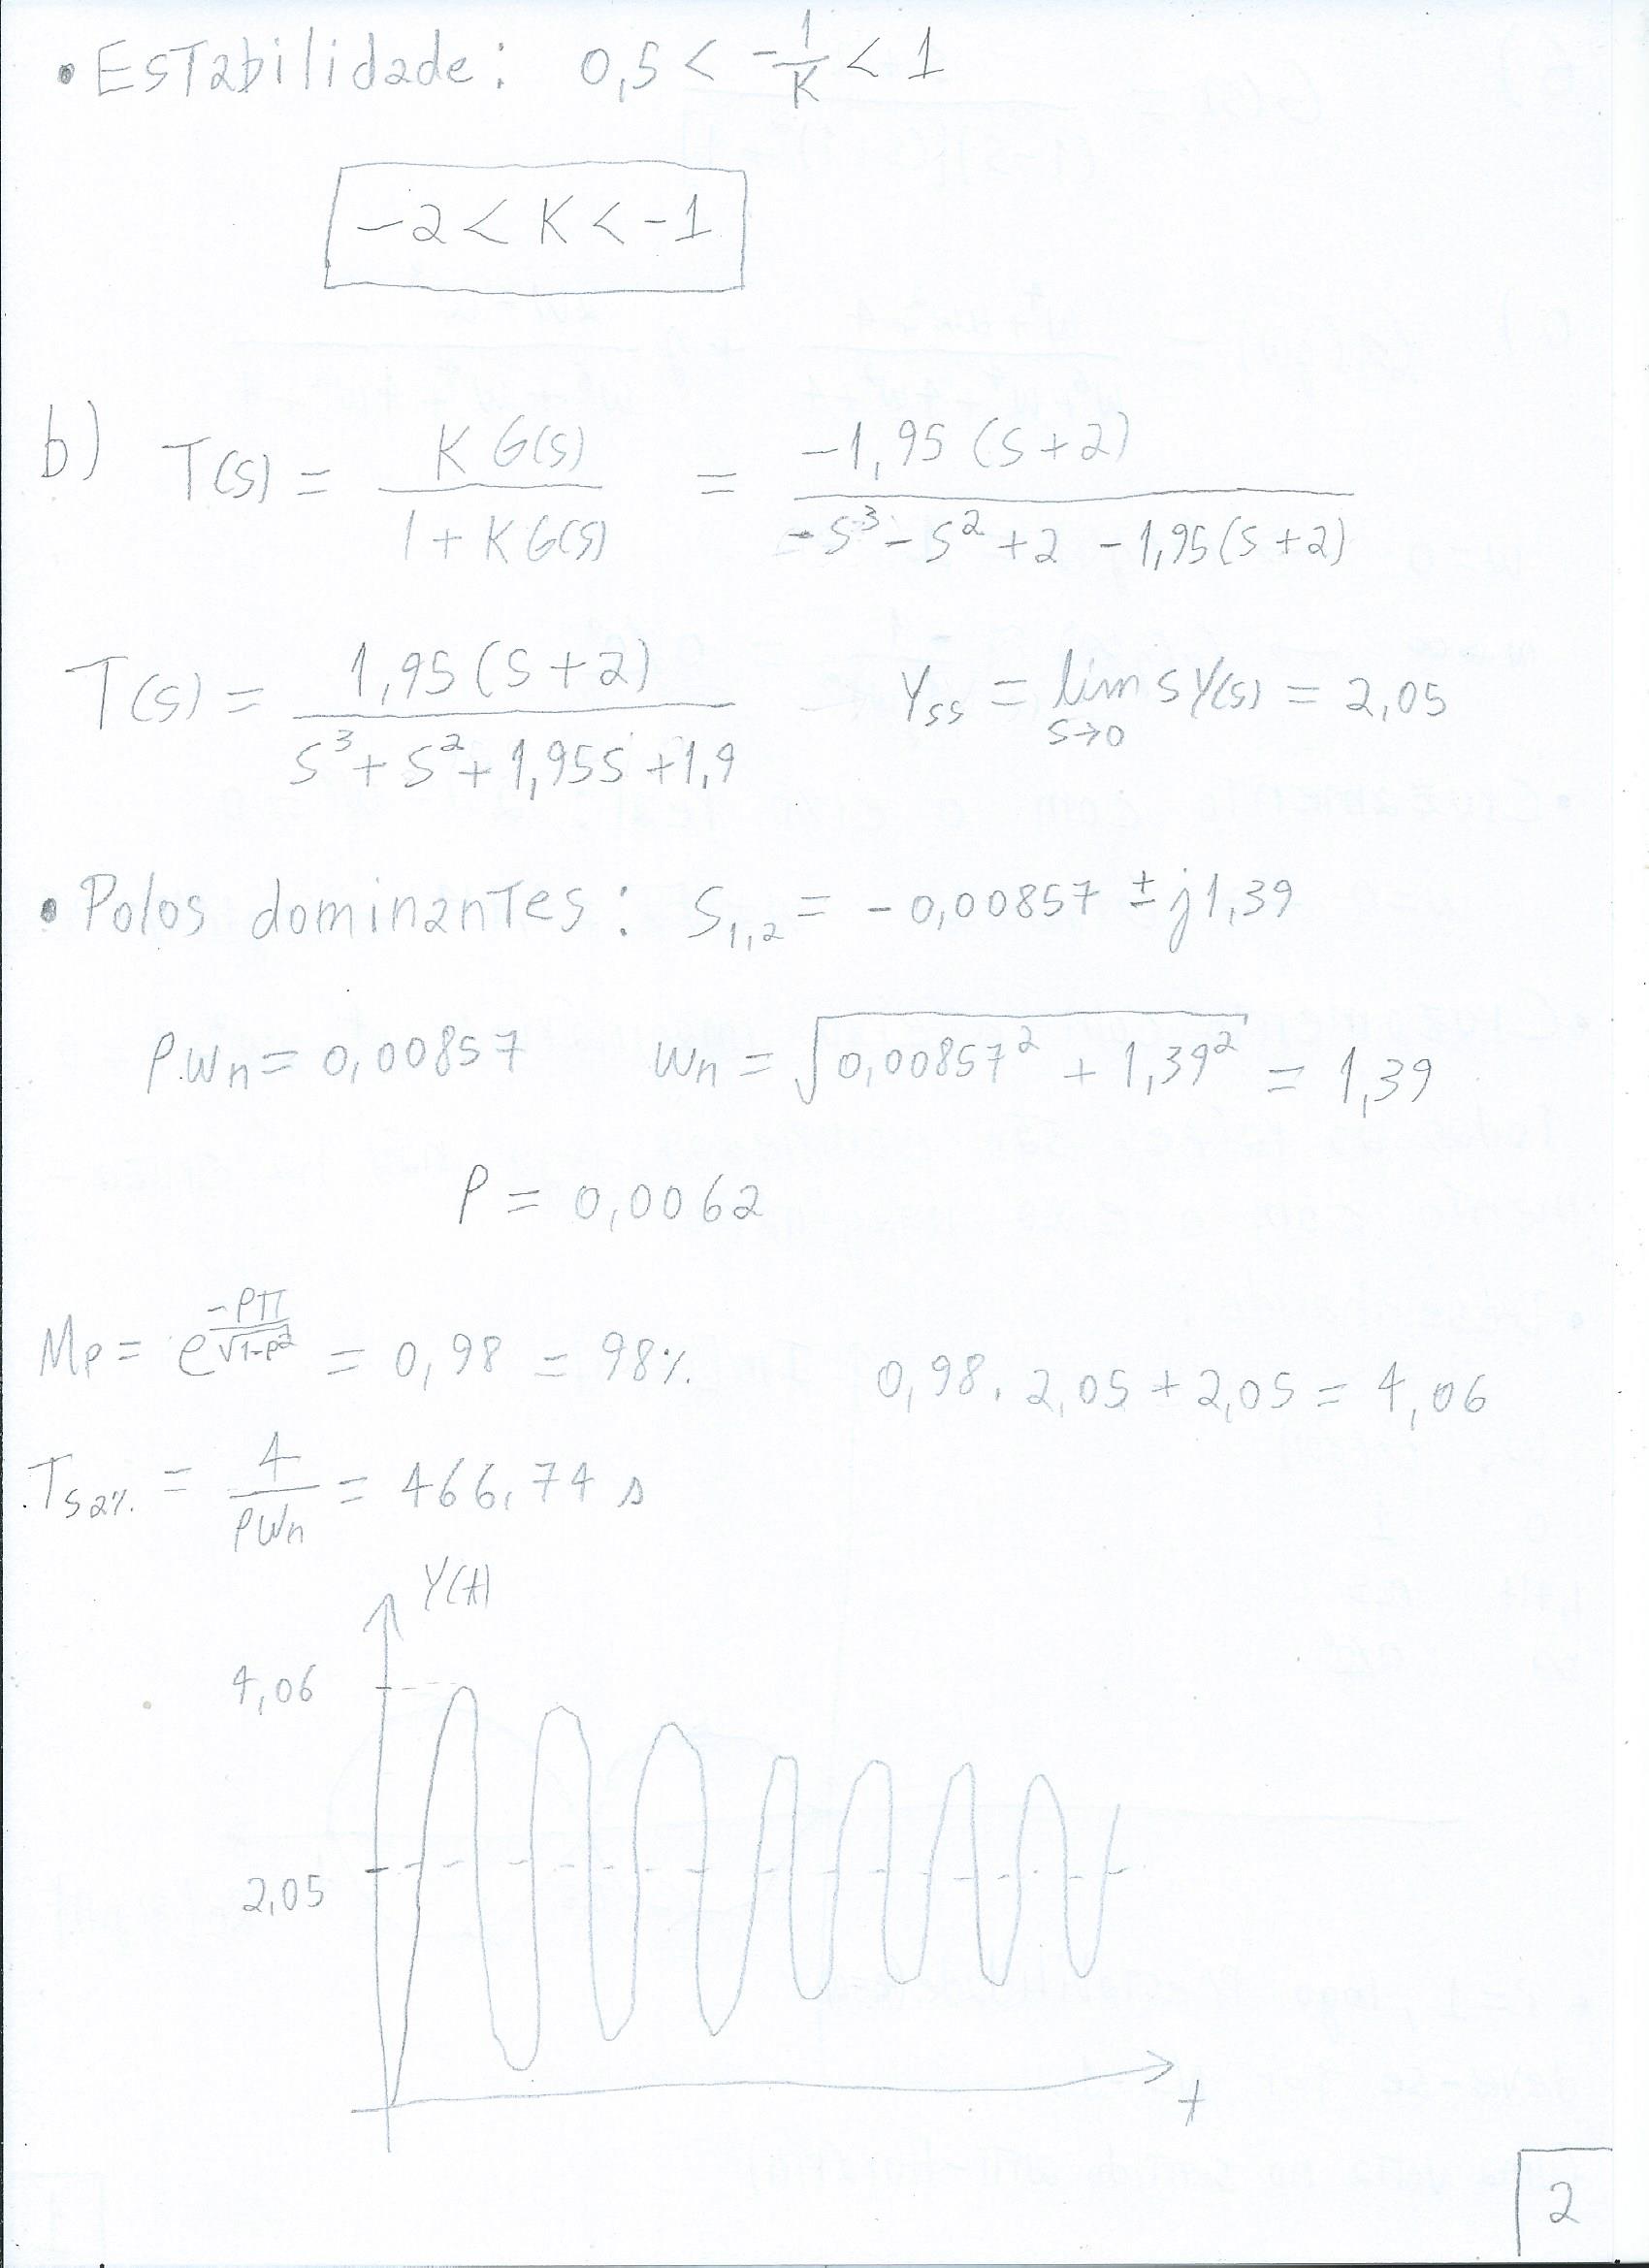 • Estabilidade: 0,5 < -1/K < 1
-2 < K < -1
b) T(s) = K G(s) / 1 + K G(s) = -1,95 (s+2) / -s³ - s² + 2 - 1,95(s+2)
T(s) = 1,95 (s+2) / s³ + s² + 1,95s + 1,9    Yss = lim s→0 s Y(s) = 2,05
• Polos dominantes: S1,2 = -0,00857 ± j1,39
ρ.Wn = 0,00857    Wn = √(0,00857² + 1,39²) = 1,39
ρ = 0,0062
Mp = e^(-ρπ/√1-ρ²) = 0,98 = 98%    0,98 . 2,05 + 2,05 = 4,06
Ts2% = 4 / ρWn = 466,74 s
Y(t)
4,06
2,05
t
2